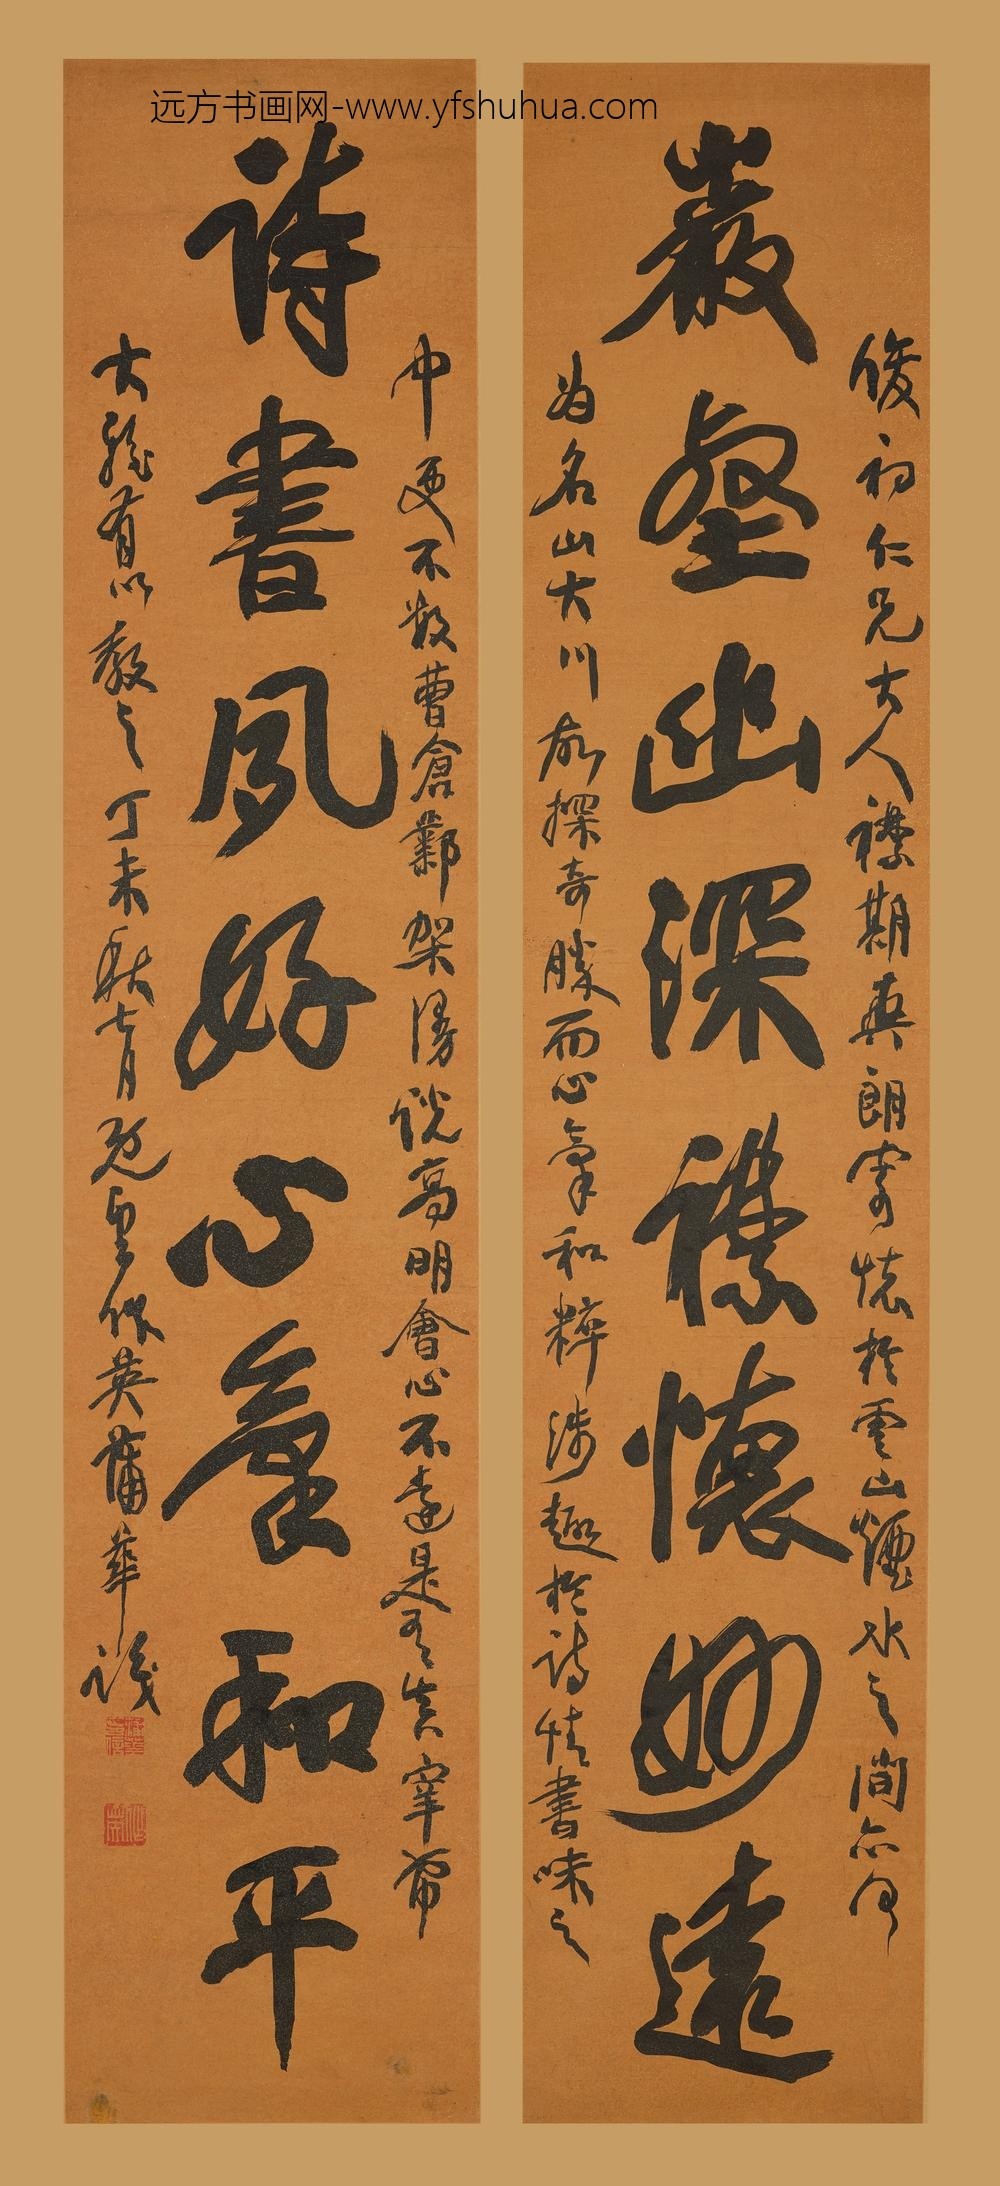 远方书画网-www.yfshuhua.com
俊初仁兄大人襟期爽朗寄懷於雲山煙水之間亦
巖壑幽深襟懷妙遠
為名山大川故探奇勝而心氣和粹涉趣於詩情書味之
中更不數曹倉鄴架漫說高明會心不遠是
詩書夙好心氣和平
大雅有以教之丁未秋七月既望作英蒲華識